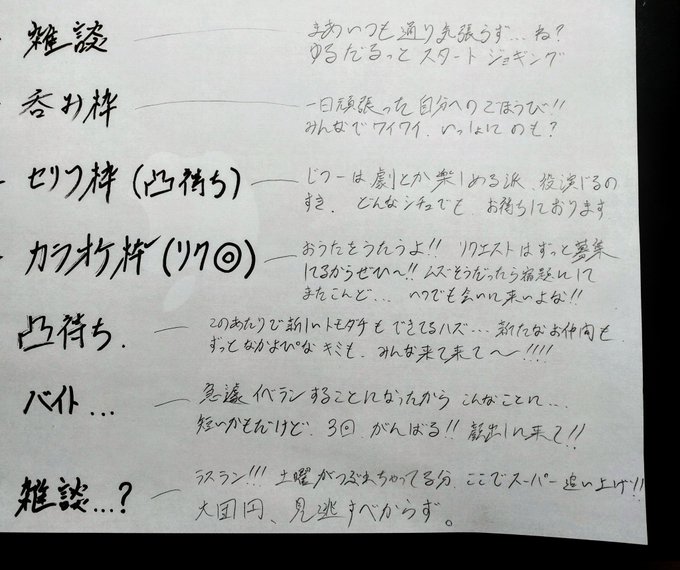 雑談
まあいつも通り気張らず…ね?
ゆるだるっと スタートジョギング
呑み枠
一日頑張った自分へのごほうび!!
みんなでワイワイ、いっしょにのも?
セリフ枠(凸待ち)
じつーは劇とか楽しめる派、役演じるの
すき、どんなシチュでも、お待ちしております
カラオケ枠(リク◎)
おうたをうたうよ!! リクエストはずっと募集
してるからぜひ〜!! ムズそうだったら宿題にして
またこんど… いつでも会いに来いよな!!
凸待ち.
このあたりで新しいトモダチもできてるハズ… 新たなお仲間も
ずっとなかよぴなキミも、みんな来て来て〜!!!!
バイト…
急遽イベランすることになったから こんなことに…
短いかもだけど、3回、がんばる!! 顔出しに来て!!
雑談…?
ラスラン!!! 土曜がつぶれちゃってる分、ここでスーパー追い上げ!!
大団円、見逃すべからず。